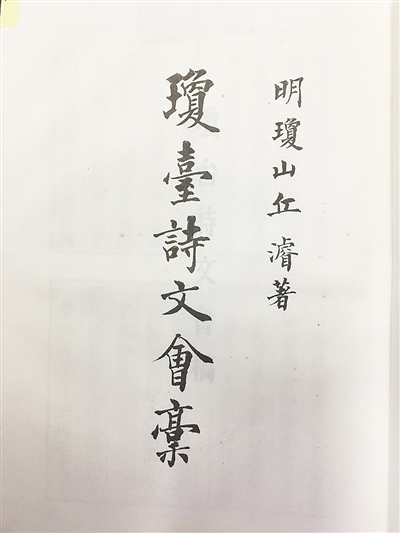 明瓊山丘濬著
瓊臺詩文會稾